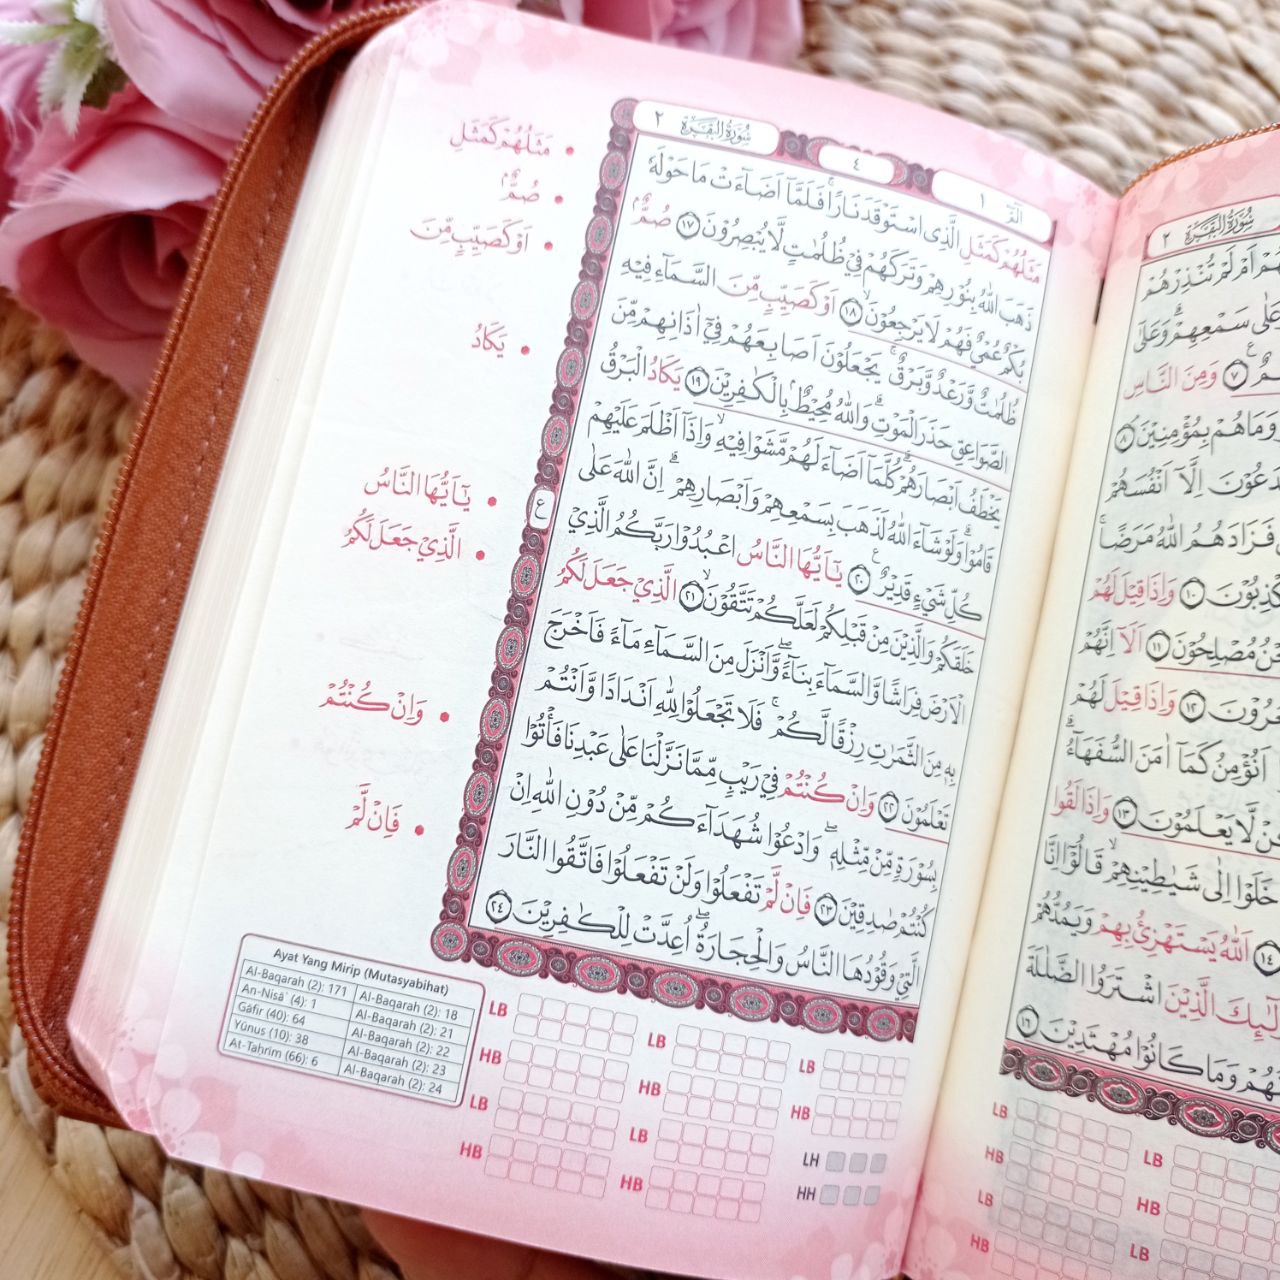 الۤمّۤ ١
٤
سُوْرَةُ الْبَقَرَةِ ٢
مَثَلُهُمْ كَمَثَلِ الَّذِى اسْتَوْقَدَ نَارًاۚ فَلَمَّآ اَضَاۤءَتْ مَا حَوْلَهٗ
ذَهَبَ اللّٰهُ بِنُوْرِهِمْ وَتَرَكَهُمْ فِيْ ظُلُمٰتٍ لَّا يُبْصِرُوْنَ ١٧ صُمٌّۢ
بُكْمٌ عُمْيٌ فَهُمْ لَا يَرْجِعُوْنَۙ ١٨ اَوْ كَصَيِّبٍ مِّنَ السَّمَاۤءِ فِيْهِ
ظُلُمٰتٌ وَّرَعْدٌ وَّبَرْقٌۚ يَجْعَلُوْنَ اَصَابِعَهُمْ فِيْٓ اٰذَانِهِمْ مِّنَ
الصَّوَاعِقِ حَذَرَ الْمَوْتِۗ وَاللّٰهُ مُحِيْطٌۢ بِالْكٰفِرِيْنَ ١٩ يَكَادُ الْبَرْقُ
يَخْطَفُ اَبْصَارَهُمْۗ كُلَّمَآ اَضَاۤءَ لَهُمْ مَّشَوْا فِيْهِۙ وَاِذَآ اَظْلَمَ عَلَيْهِمْ
قَامُوْاۗ وَلَوْ شَاۤءَ اللّٰهُ لَذَهَبَ بِسَمْعِهِمْ وَاَبْصَارِهِمْۗ اِنَّ اللّٰهَ عَلٰى
كُلِّ شَيْءٍ قَدِيْرٌ ࣖ ٢٠ يٰٓاَيُّهَا النَّاسُ اعْبُدُوْا رَبَّكُمُ الَّذِيْ
خَلَقَكُمْ وَالَّذِيْنَ مِنْ قَبْلِكُمْ لَعَلَّكُمْ تَتَّقُوْنَۙ ٢١ الَّذِيْ جَعَلَ لَكُمُ
الْاَرْضَ فِرَاشًا وَّالسَّمَاۤءَ بِنَاۤءًۖ وَّاَنْزَلَ مِنَ السَّمَاۤءِ مَاۤءً فَاَخْرَجَ
بِهٖ مِنَ الثَّمَرٰتِ رِزْقًا لَّكُمْۚ فَلَا تَجْعَلُوْا لِلّٰهِ اَنْدَادًا وَّاَنْتُمْ
تَعْلَمُوْنَ ٢٢ وَاِنْ كُنْتُمْ فِيْ رَيْبٍ مِّمَّا نَزَّلْنَا عَلٰى عَبْدِنَا فَأْتُوْا
بِسُوْرَةٍ مِّنْ مِّثْلِهٖۖ وَادْعُوْا شُهَدَاۤءَكُمْ مِّنْ دُوْنِ اللّٰهِ اِنْ
كُنْتُمْ صٰدِقِيْنَ ٢٣ فَاِنْ لَّمْ تَفْعَلُوْا وَلَنْ تَفْعَلُوْا فَاتَّقُوا النَّارَ
الَّتِيْ وَقُوْدُهَا النَّاسُ وَالْحِجَارَةُۖ اُعِدَّتْ لِلْكٰفِرِيْنَ ٢٤
مَثَلُهُمْ كَمَثَلِ
صُمٌّۢ
اَوْ كَصَيِّبٍ مِّنَ
يَكَادُ
ع
يٰٓاَيُّهَا النَّاسُ
الَّذِيْ جَعَلَ لَكُمُ
وَاِنْ كُنْتُمْ
فَاِنْ لَّمْ
Ayat Yang Mirip (Mutasyabihat)
Al-Baqarah (2): 171 Al-Baqarah (2): 18
An-Nisā` (4): 1 Al-Baqarah (2): 21
Gāfir (40): 64 Al-Baqarah (2): 22
Yūnus (10): 38 Al-Baqarah (2): 23
At-Taḥrīm (66): 6 Al-Baqarah (2): 24
LB LB LB
HB HB HB
LB LB LH
HB HB HH
سُوْرَةُ الْبَقَرَةِ ٢
اَمْ لَمْ تُنْذِرْهُمْ
عَلٰى سَمْعِهِمْۗ وَعَلٰٓى
٧ وَمِنَ النَّاسِ
وَمَا هُمْ بِمُؤْمِنِيْنَۘ ٨
اِلَّآ اَنْفُسَهُمْ
فَزَادَهُمُ اللّٰهُ مَرَضًاۚ
١٠ وَاِذَا قِيْلَ لَهُمْ
مُصْلِحُوْنَ ١١ اَلَآ اِنَّهُمْ
١٢ وَاِذَا قِيْلَ لَهُمْ
اَنُؤْمِنُ كَمَآ اٰمَنَ السُّفَهَاۤءُۗ
لَّا يَعْلَمُوْنَ ١٣ وَاِذَا لَقُوا
خَلَوْا اِلٰى شَيٰطِيْنِهِمْۙ قَالُوْٓا اِنَّا
١٤ اَللّٰهُ يَسْتَهْزِئُ بِهِمْ وَيَمُدُّهُمْ
الَّذِيْنَ اشْتَرَوُا الضَّلٰلَةَ
وَمَا كَانُوْا مُهْتَدِيْنَ ١٦
LB LB
HB HB
LB LB
HB